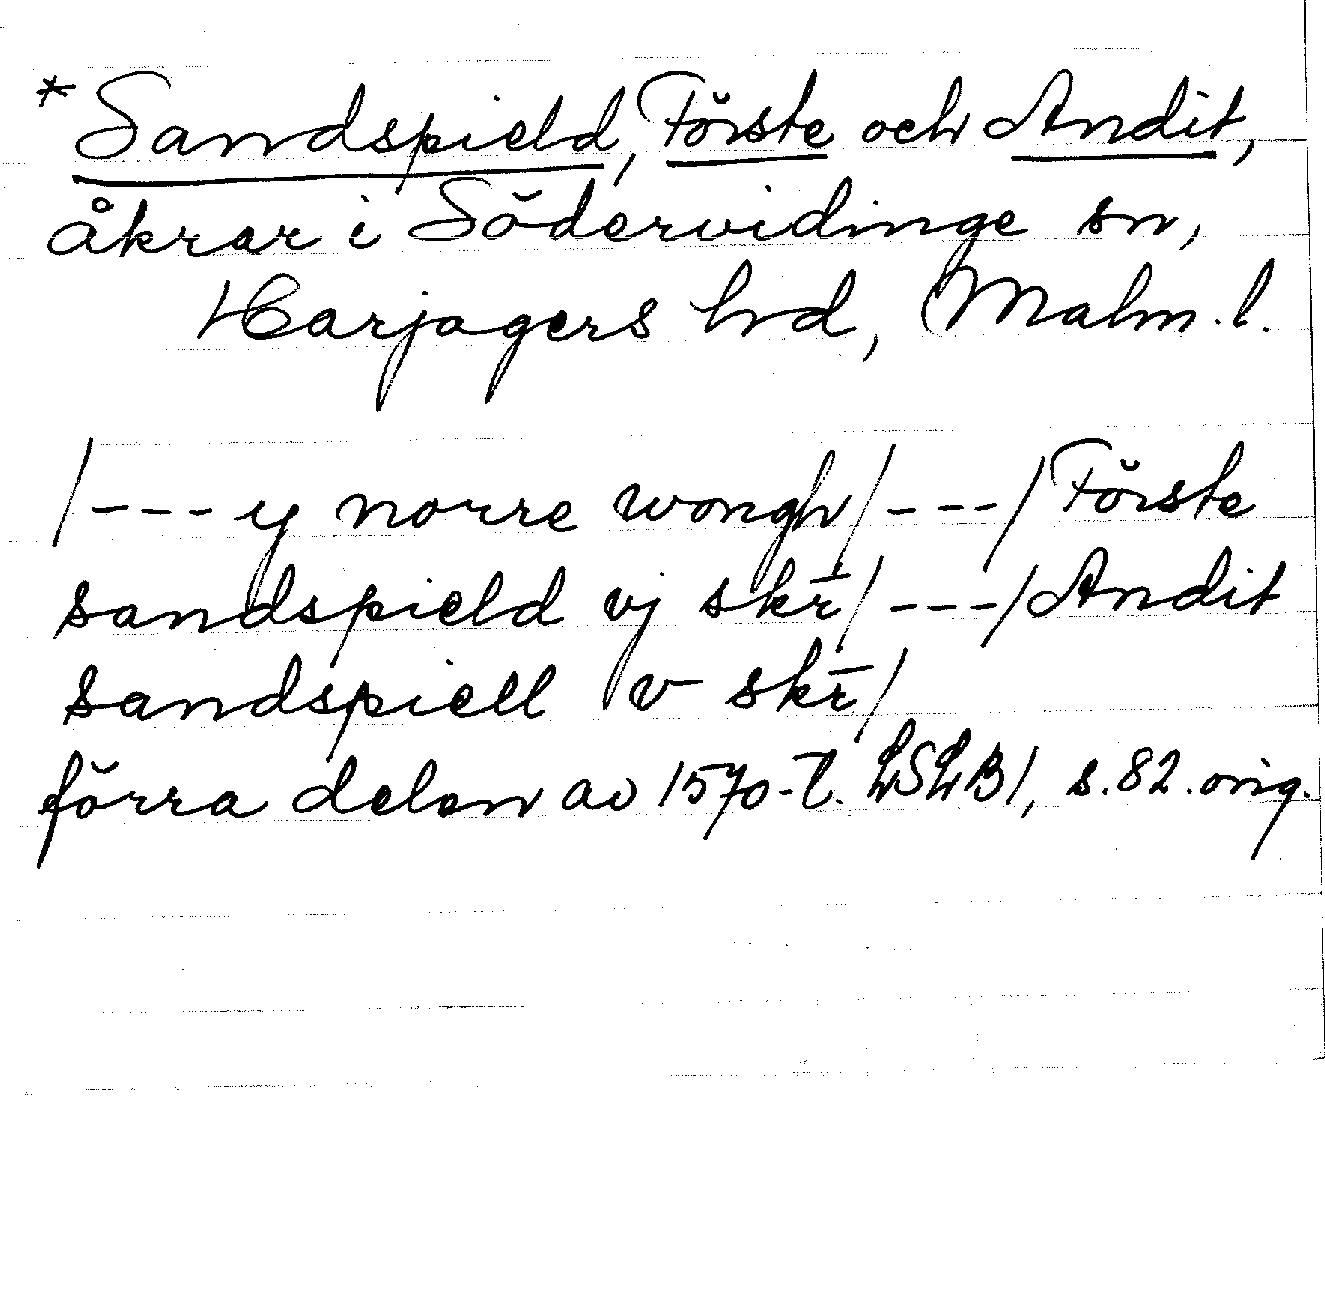 *Sandspield, Förste och Andit,
åkrar i Södervidinge sn,
Harjagers hd, Malm. l.
/--- y norre wongh/---/Förste
sandspield vj skr̄/---/Andit
sandspiell v skr̄/
förra delen av 1570-t. LSLB1, s.82.orig.